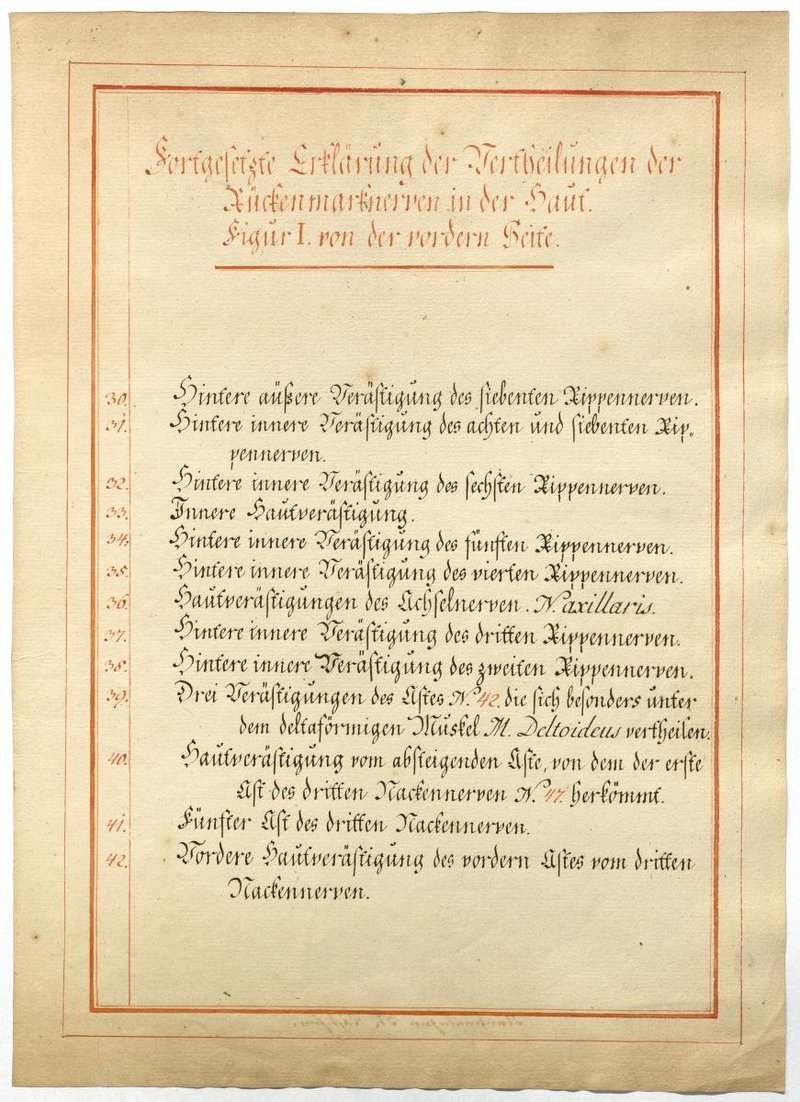 Fortgesetzte Erklärung der Vertheilungen der
Rückenmarknerven in der Haut.
Figur I. von der vordern Seite.
30. Hintere äußere Verästigung des siebenten Rippennerven.
31. Hintere innere Verästigung des achten und siebenten Rip„
pennerven.
32. Hintere innere Verästigung des sechsten Rippennerven.
33. Innere Hautverästigung.
34. Hintere innere Verästigung des fünften Rippennerven.
35. Hintere innere Verästigung des vierten Rippennerven.
36. Hautverästigungen des Achselnerven. N. axillaris.
37. Hintere innere Verästigung des dritten Rippennerven.
38. Hintere innere Verästigung des zweiten Rippennerven.
39. Drei Verästigungen des Astes N.º 42. die sich besonders unter
dem deltaförmigen Muskel M. Deltoideus vertheilen.
40. Hautverästigung vom absteigenden Aste, von dem der erste
Ast des dritten Nackennerven N.º 47. herkömmt.
41. Fünfter Ast des dritten Nackennerven.
42. Vordere Hautverästigung des vordern Astes vom dritten
Nackennerven.